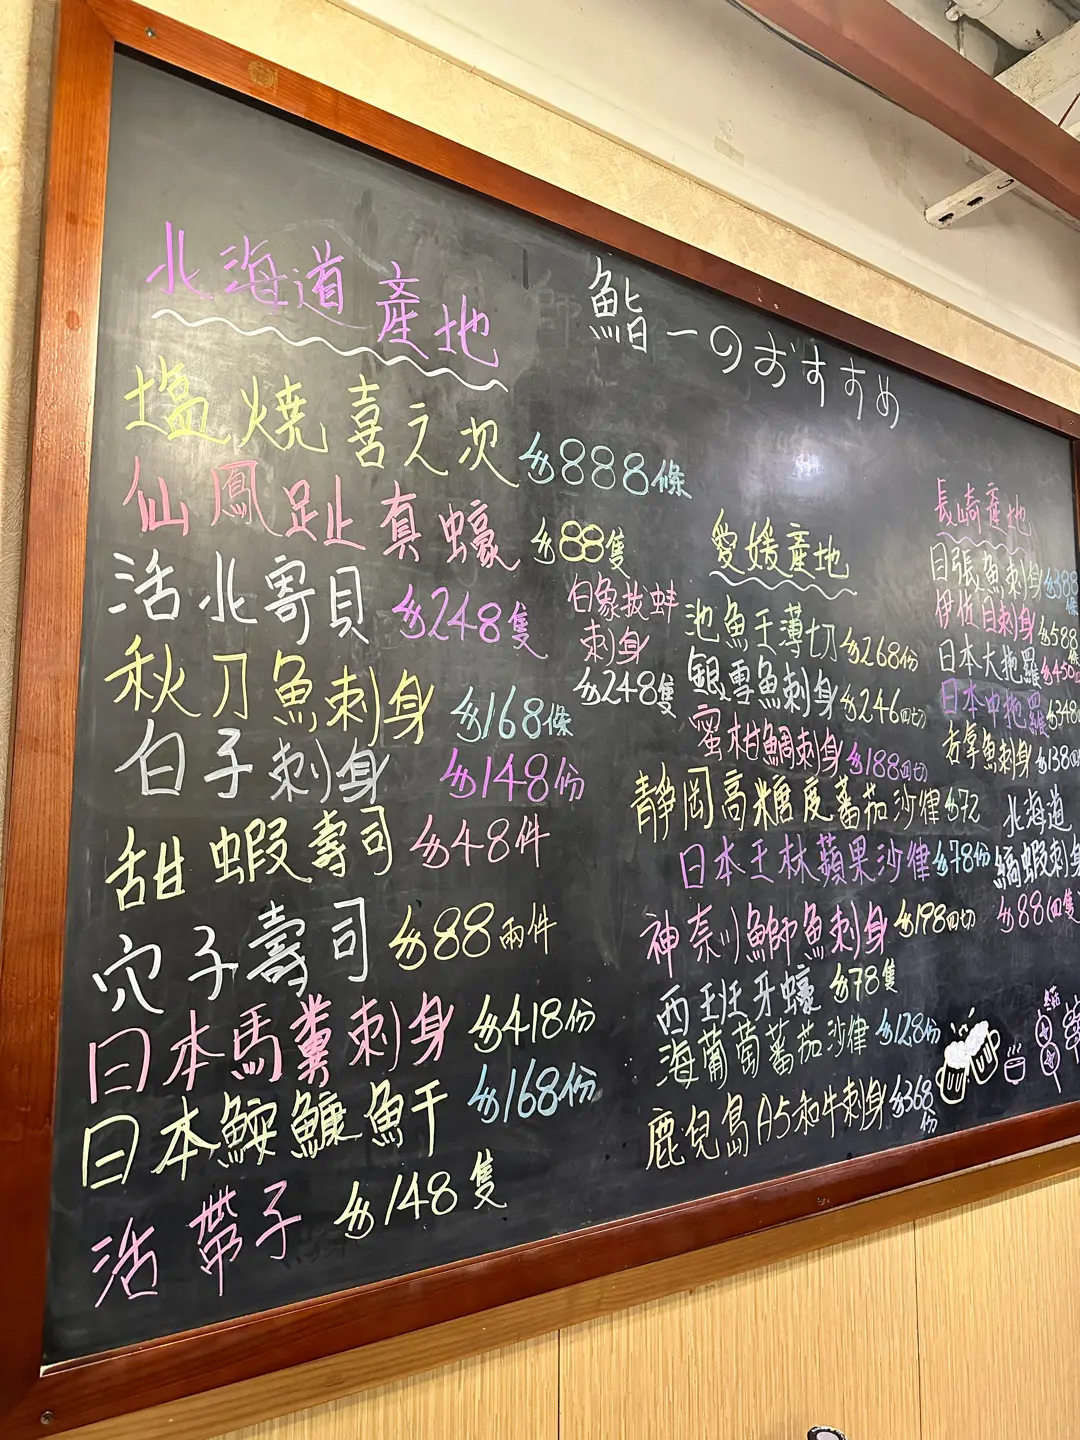 鮨一のおすすめ
北海道產地
塩燒喜之次 $888條
仙鳳趾真蠔 $88隻
活北寄貝 $248隻
秋刀魚刺身 $168條
白子刺身 $148份
甜蝦壽司 $48件
穴子壽司 $88兩件
日本馬糞刺身 $418份
日本鮟鱇魚干 $168份
活帶子 $148隻
白象拔蚌
刺身
$248隻
愛媛產地
池魚王薄切 $268份
銀雪魚刺身 $246四切
蜜柑鯛刺身 $188四切
靜岡高糖度蕃茄沙律 $72
日本王林蘋果沙律 $78份
神奈川鰤魚刺身 $198四切
西班牙蠔 $78隻
海葡萄蕃茄沙律 $128份
鹿兒島A5和牛刺身 $368
份
長崎產地
目張魚刺身 $388
條
伊佐目刺身 $588
條
日本大拖羅 $450
日本中拖羅 $348
吉拿魚刺身 $138
北海道
縞蝦刺身
$88(四隻